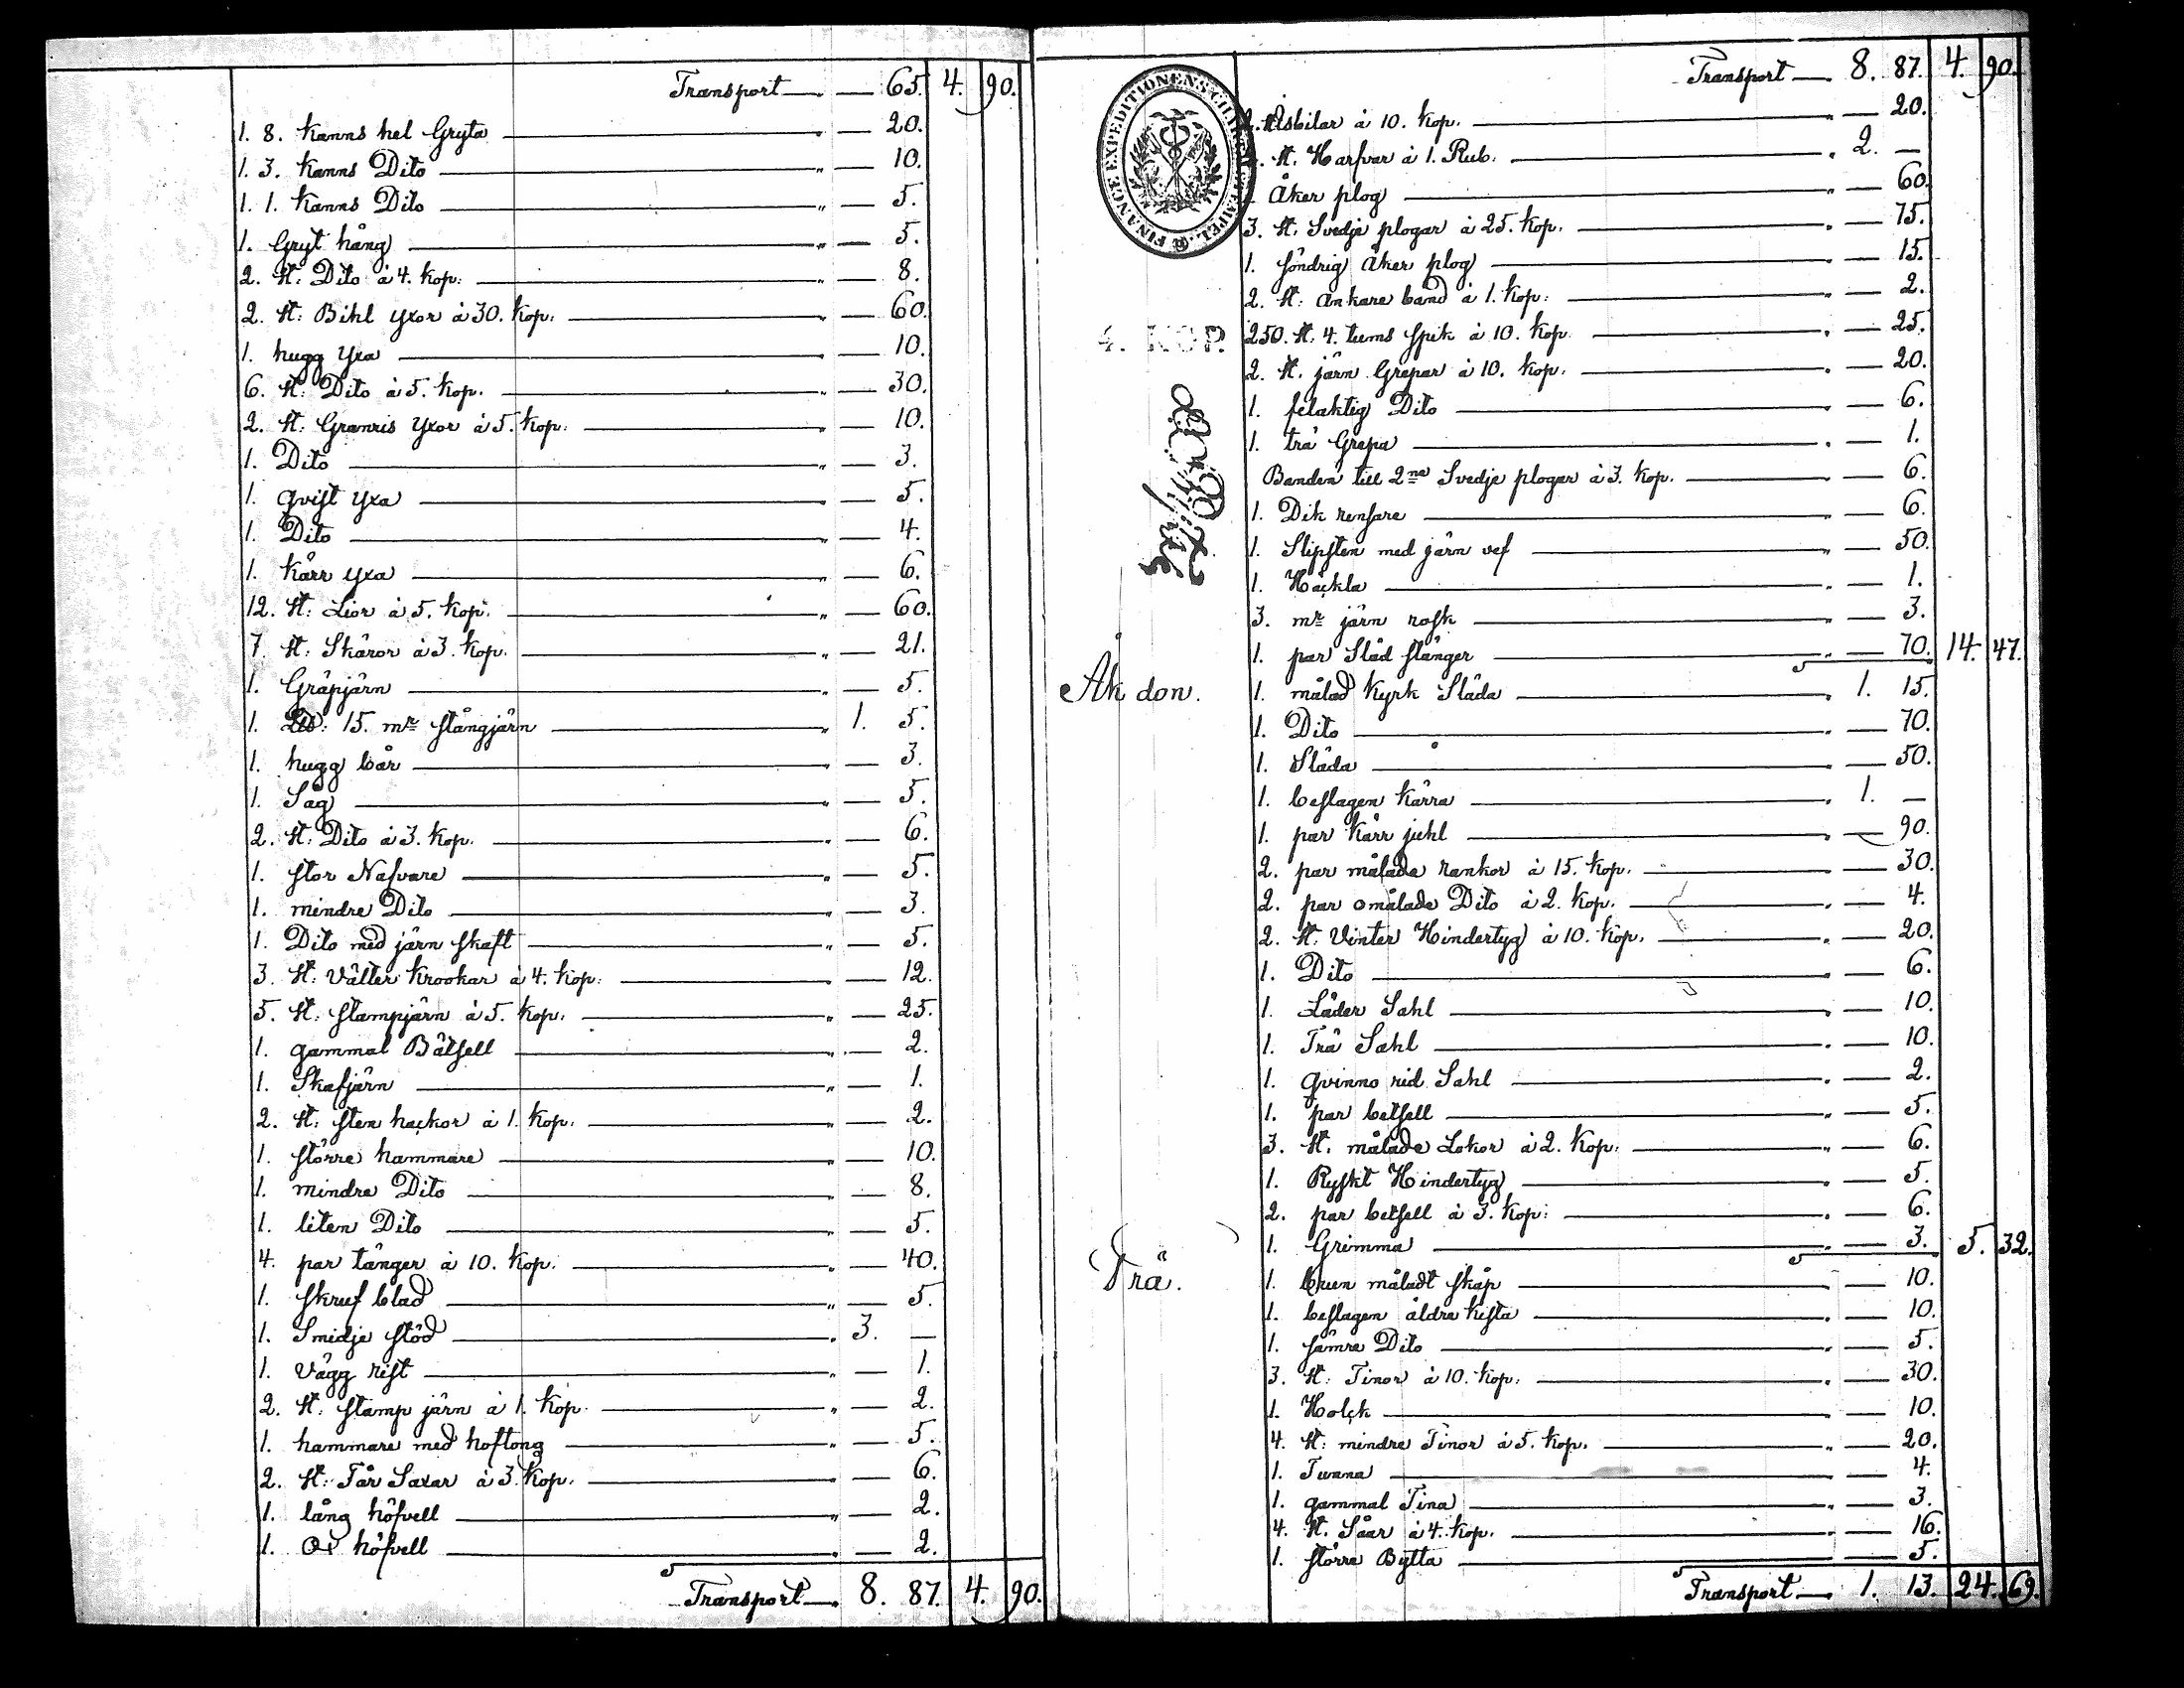 Transport — 65. 4. 90.
1. 8. kanns hel Gryta — 20.
1. 3. kanns Dito — 10.
1. 1. kanns Dito — 5.
1. Gryt häng — 5.
2. st: Dito à 4. kop: — 8.
2. st: Bihl yxor à 30. kop. — 60.
1. hugg yxa — 10.
6. st: Dito à 5. kop. — 30.
2. st: Granris yxor à 5. kop: — 10.
1. Dito — 3.
1. qvist yxa — 5.
1. Dito — 4.
1. kärr yxa — 6.
12. st: Lior à 5. kop: — 60.
7. st: Skäror à 3. kop. — 21.
1. Gräpjärn — 5.
1. 15. mr stångjärn — 1. 5.
1. hugg bår — 3.
1. Såg — 5.
2. st: Dito à 3. kop. — 6.
1. stor Nafvare — 5.
1. mindre Dito — 3.
1. Dito med järn skaft — 5.
3. st: Välter krookar à 4. kop: — 12.
5. st: stampjärn à 5. kop. — 25.
1. gammal Bätsell — 2.
1. Skafjärn — 1.
2. st: sten hackor à 1. kop. — 2.
1. större hammare — 10.
1. mindre Dito — 8.
1. liten Dito — 5.
4. par tänger à 10. kop. — 40.
1. skruf blad — 5.
1. Smidje städ — 3. —
1. Vägg rist — 1.
2. st: stamp järn à 1. kop. — 2.
1. hammare med hoftong — 5.
2. st: Får Saxar à 3. kop. — 6.
1. lång höfvell — 2.
1. höfvell — 2.
Transport — 8. 87. 4. 90.
FINANCE EXPEDITIONENS CHARTÆ STEMPEL
4. KOP.
Transport — 8. 87. 4. 90.
2. Åsbilar à 10. kop. — 20.
st. Harfvar à 1. Rub. — 2. —
Åker plog — 60.
3. st. Svedje plogar à 25. kop. — 75.
1. söndrig åker plog — 15.
2. st: ankare band à 1. kop: — 2.
250. st. 4. tums spik à 10. kop. — 25.
2. st. järn Grepar à 10. kop. — 20.
1. felaktig Dito — 6.
1. trä Grepa — 1.
Banden till 2ne Svedje plogar à 3. kop. — 6.
1. Dik rensare — 6.
1. Slipsten med järn vef — 50.
1. Häckla — 1.
3. mr järn rosk — 3.
1. par Släd stänger — 70. 14. 47.
Åk don.
1. målad kyrk Släda — 1. 15.
1. Dito — 70.
1. Släda — 50.
1. beslagen kärra — 1. —
1. par kärr juhl — 90.
2. par målade rankor à 15. kop. — 30.
2. par omålade Dito à 2. kop. — 4.
2. st: Vinter Hindertyg à 10. kop. — 20.
1. Dito — 6.
1. Läder Sahl — 10.
1. Trä Sahl — 10.
1. qvinno rid Sahl — 2.
1. par betsell — 5.
3. st. målade Lokor à 2. kop: — 6.
1. Ryskt Hindertyg — 5.
2. par betsell à 3. kop: — 6.
1. Grimma — 3. 5. 32.
Trä.
1. brun måladt skåp — 10.
1. beslagen äldre kista — 10.
1. sämre Dito — 5.
3. st: Tinor à 10. kop. — 30.
1. Holck — 10.
4. st: mindre Tinor à 5. kop. — 20.
1. Tunna — 4.
1. gammal Tina — 3.
4. st. Såar à 4. kop. — 16.
1. större Bytta — 5.
Transport — 1. 13. 24. 69.